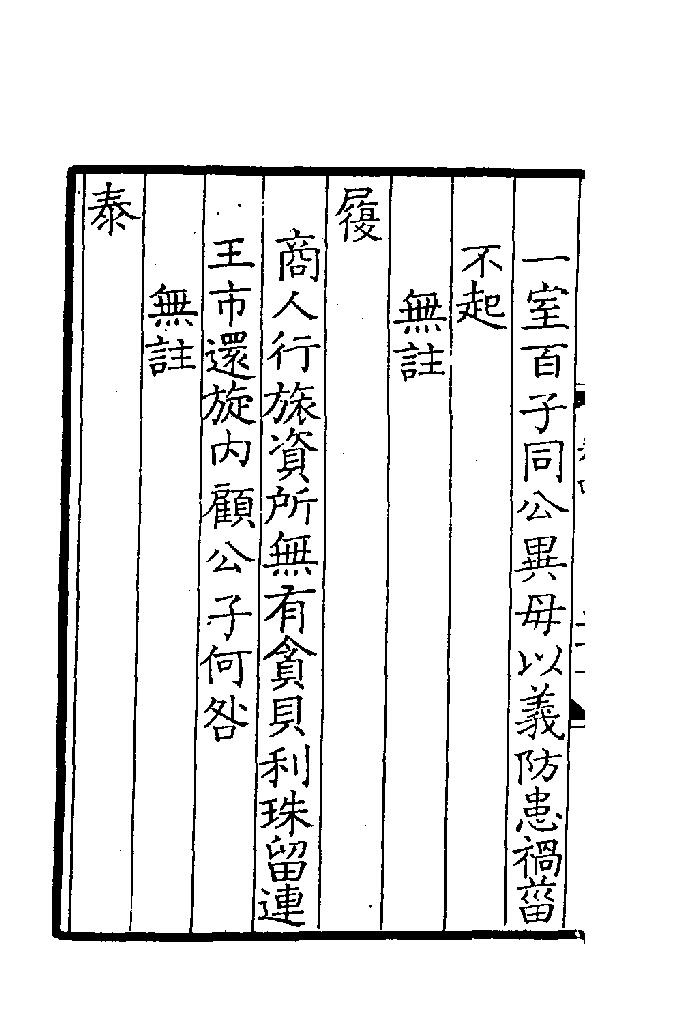 一室百子同公異母以義防患禍菑
不起
無註
履
商人行旅資所無有貪貝利珠留連
王市還旋内顧公子何咎
無註
泰